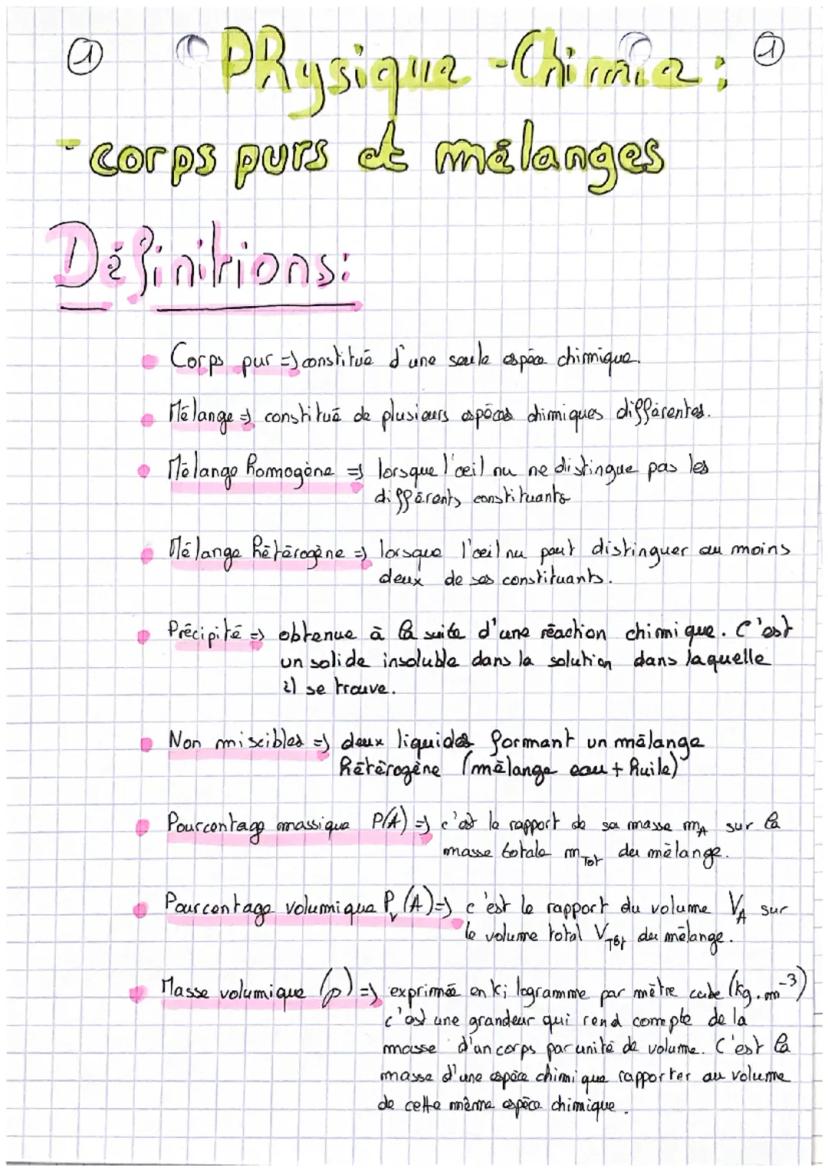 1 Physique-Chimie : 1
- corps purs et mélanges
Définitions:
Corps pur => constitué d'une seule espèce chimique.
Mélange => constitué de plusieurs espèces chimiques différentes.
Mélange homogène => lorsque l'œil nu ne distingue pas les
différents constituants
Mélange hétérogène => lorsque l'œil nu peut distinguer au moins
deux de ses constituants.
Précipité => obtenue à la suite d'une réaction chimique. C'est
un solide insoluble dans la solution dans laquelle
il se trouve.
Non miscibles => deux liquides formant un mélange
hétérogène (mélange eau + huile)
Pourcentage massique P(A) => c'est le rapport de sa masse mA sur la
masse totale mTot du mélange.
Pourcentage volumique Pv(A) => c'est le rapport du volume VA sur
le volume total VTot du mélange.
Masse volumique (ρ) => exprimée en kilogramme par mètre cube (kg.m⁻³)
c'est une grandeur qui rend compte de la
masse d'un corps par unité de volume. C'est la
masse d'une espèce chimique rapporter au volume
de cette même espèce chimique.